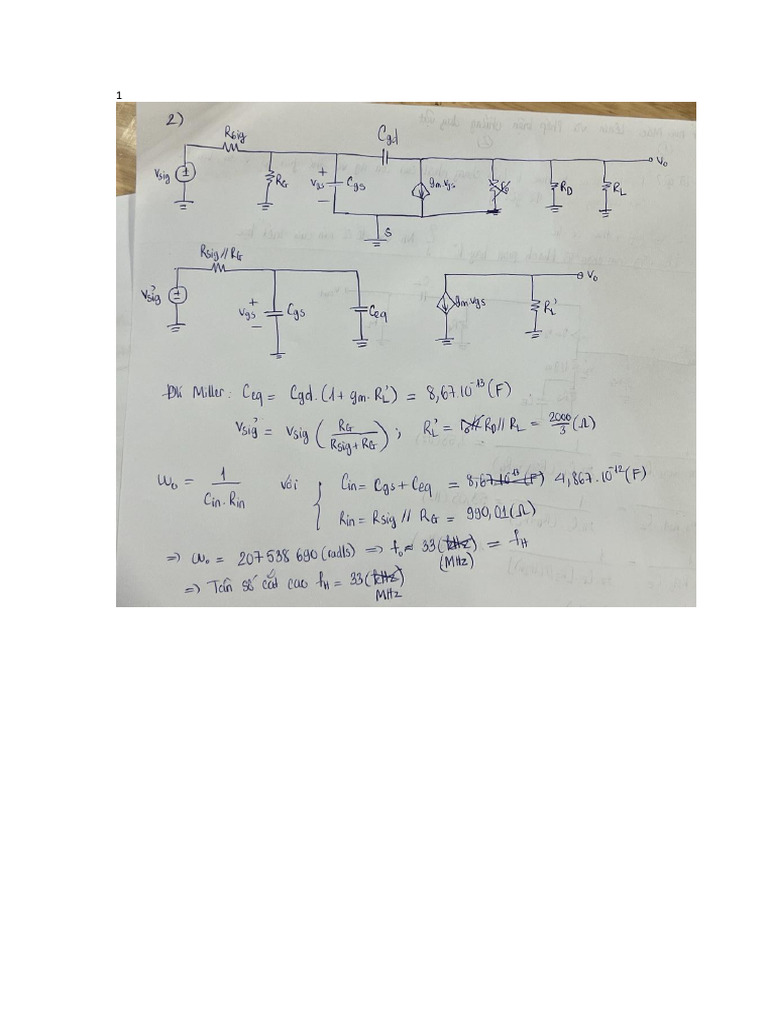 1
2)
Rsig
Cgd
Vsig
RG
+
vgs
−
Cgs
gm.vgs
ro
RD
RL
vo
S
Rsig//RG
Vsig'
+
vgs
−
Cgs
Ceq
gm.vgs
RL'
vo
Đlí Miller: Ceq = Cgd.(1+gm.RL') = 8,67.10⁻¹³(F)
Vsig' = Vsig (RG/(Rsig+RG)); RL' = RD//RL = 2000/3 (Ω)
ω₀ = 1/(Cin.Rin) với { Cin = Cgs + Ceq = 8,67.10⁻¹³(F) 4,867.10⁻¹²(F)
Rin = Rsig // RG = 990,01(Ω)
=> ω₀ = 207 538 690 (rad/s) => f₀ ≈ 33 (kHz) = fH
(MHz)
=> Tần số cắt cao fH = 33 (kHz)
MHz